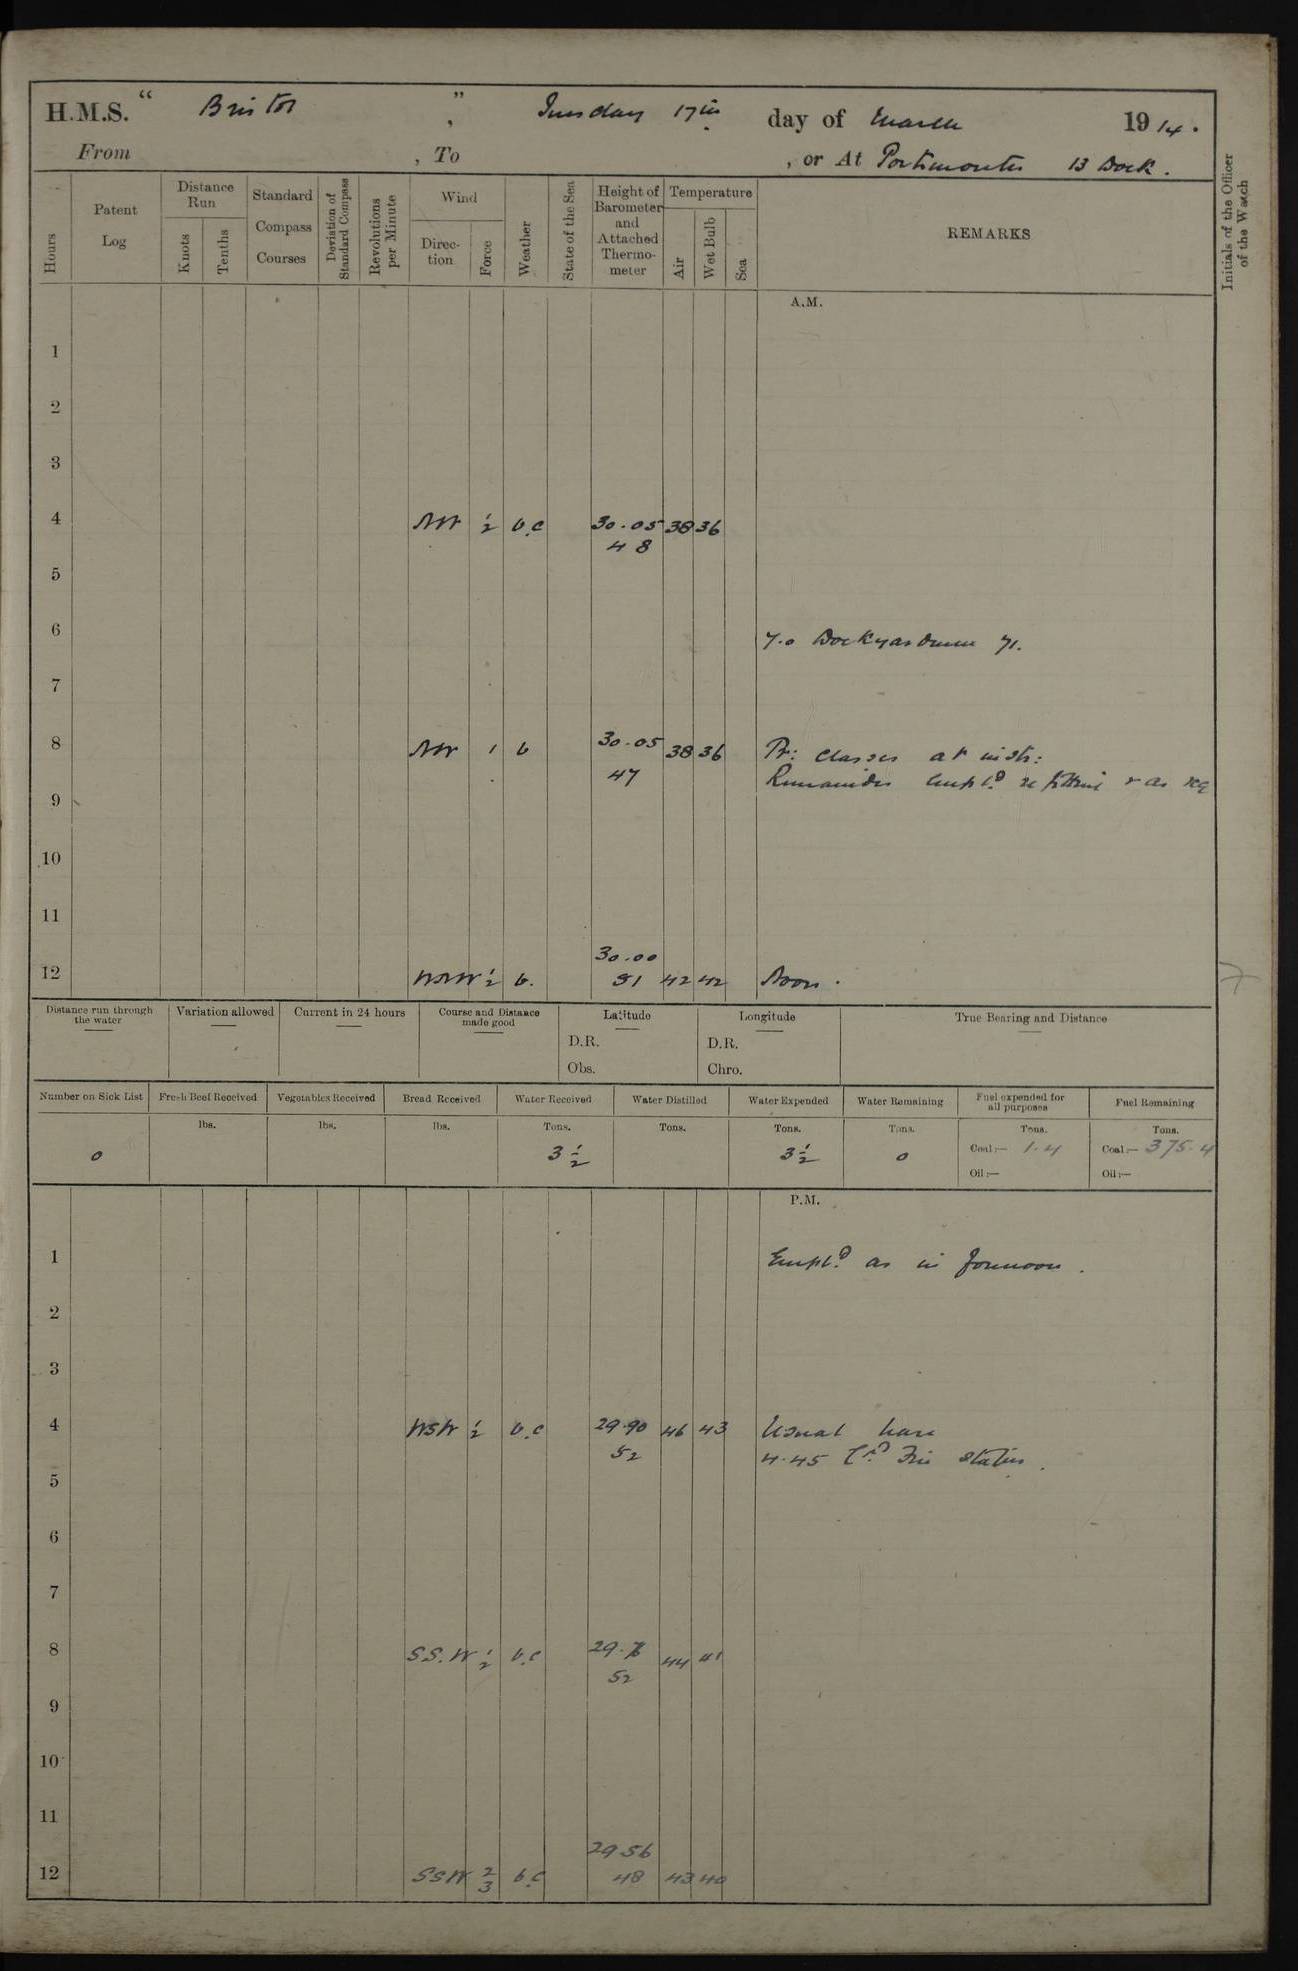 H.M.S. “ Bristol ” , Tuesday 17th day of March 1914.
From , To , or At Portsmouth 13 Dock.
Hours
Patent Log
Distance Run
Knots
Tenths
Standard Compass Courses
Deviation of Standard Compass
Revolutions per Minute
Wind
Direction
Force
Weather
State of the Sea
Height of Barometer and Attached Thermometer
Temperature
Air
Wet Bulb
Sea
REMARKS
Initials of the Officer of the Watch
A.M.
1
2
3
4 NW 1/2 b.c 30.05 38 36
48
5
6
7.0 Dockyardmen 71.
7
8 NW 1 b 30.05 38 36 Pt: classes at instr:
47 Remainder empld refitting & as req
9
10
11
30.00
12 WNW 1/2 b. 51 42 42 Noon.
Distance run through the water
Variation allowed
Current in 24 hours
Course and Distance made good
Latitude
D.R.
Obs.
Longitude
D.R.
Chro.
True Bearing and Distance
Number on Sick List
0
Fresh Beef Received
lbs.
Vegetables Received
lbs.
Bread Received
lbs.
Water Received
Tons.
3 1/2
Water Distilled
Tons.
Water Expended
Tons.
3 1/2
Water Remaining
Tons.
0
Fuel expended for all purposes
Tons.
Coal:— 1.4
Oil:—
Fuel Remaining
Tons.
Coal:— 375.4
Oil:—
P.M.
1 Empld as in forenoon.
2
3
4 WSW 1/2 b.c 29.90 46 43 Usual leave
52 4.45 Fire Stations.
5
6
7
8 S.S.W 1/2 b.c 44 41
52
9
10
11
29 56
12 SSW 2/3 b.c 48 43 40